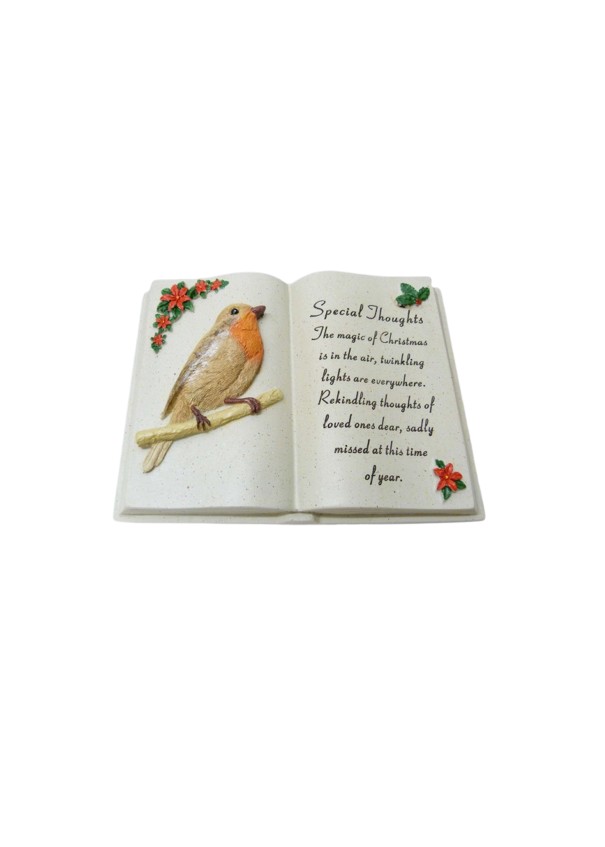 Special Thoughts
The magic of Christmas
is in the air, twinkling
lights are everywhere.
Rekindling thoughts of
loved ones dear, sadly
missed at this time
of year.